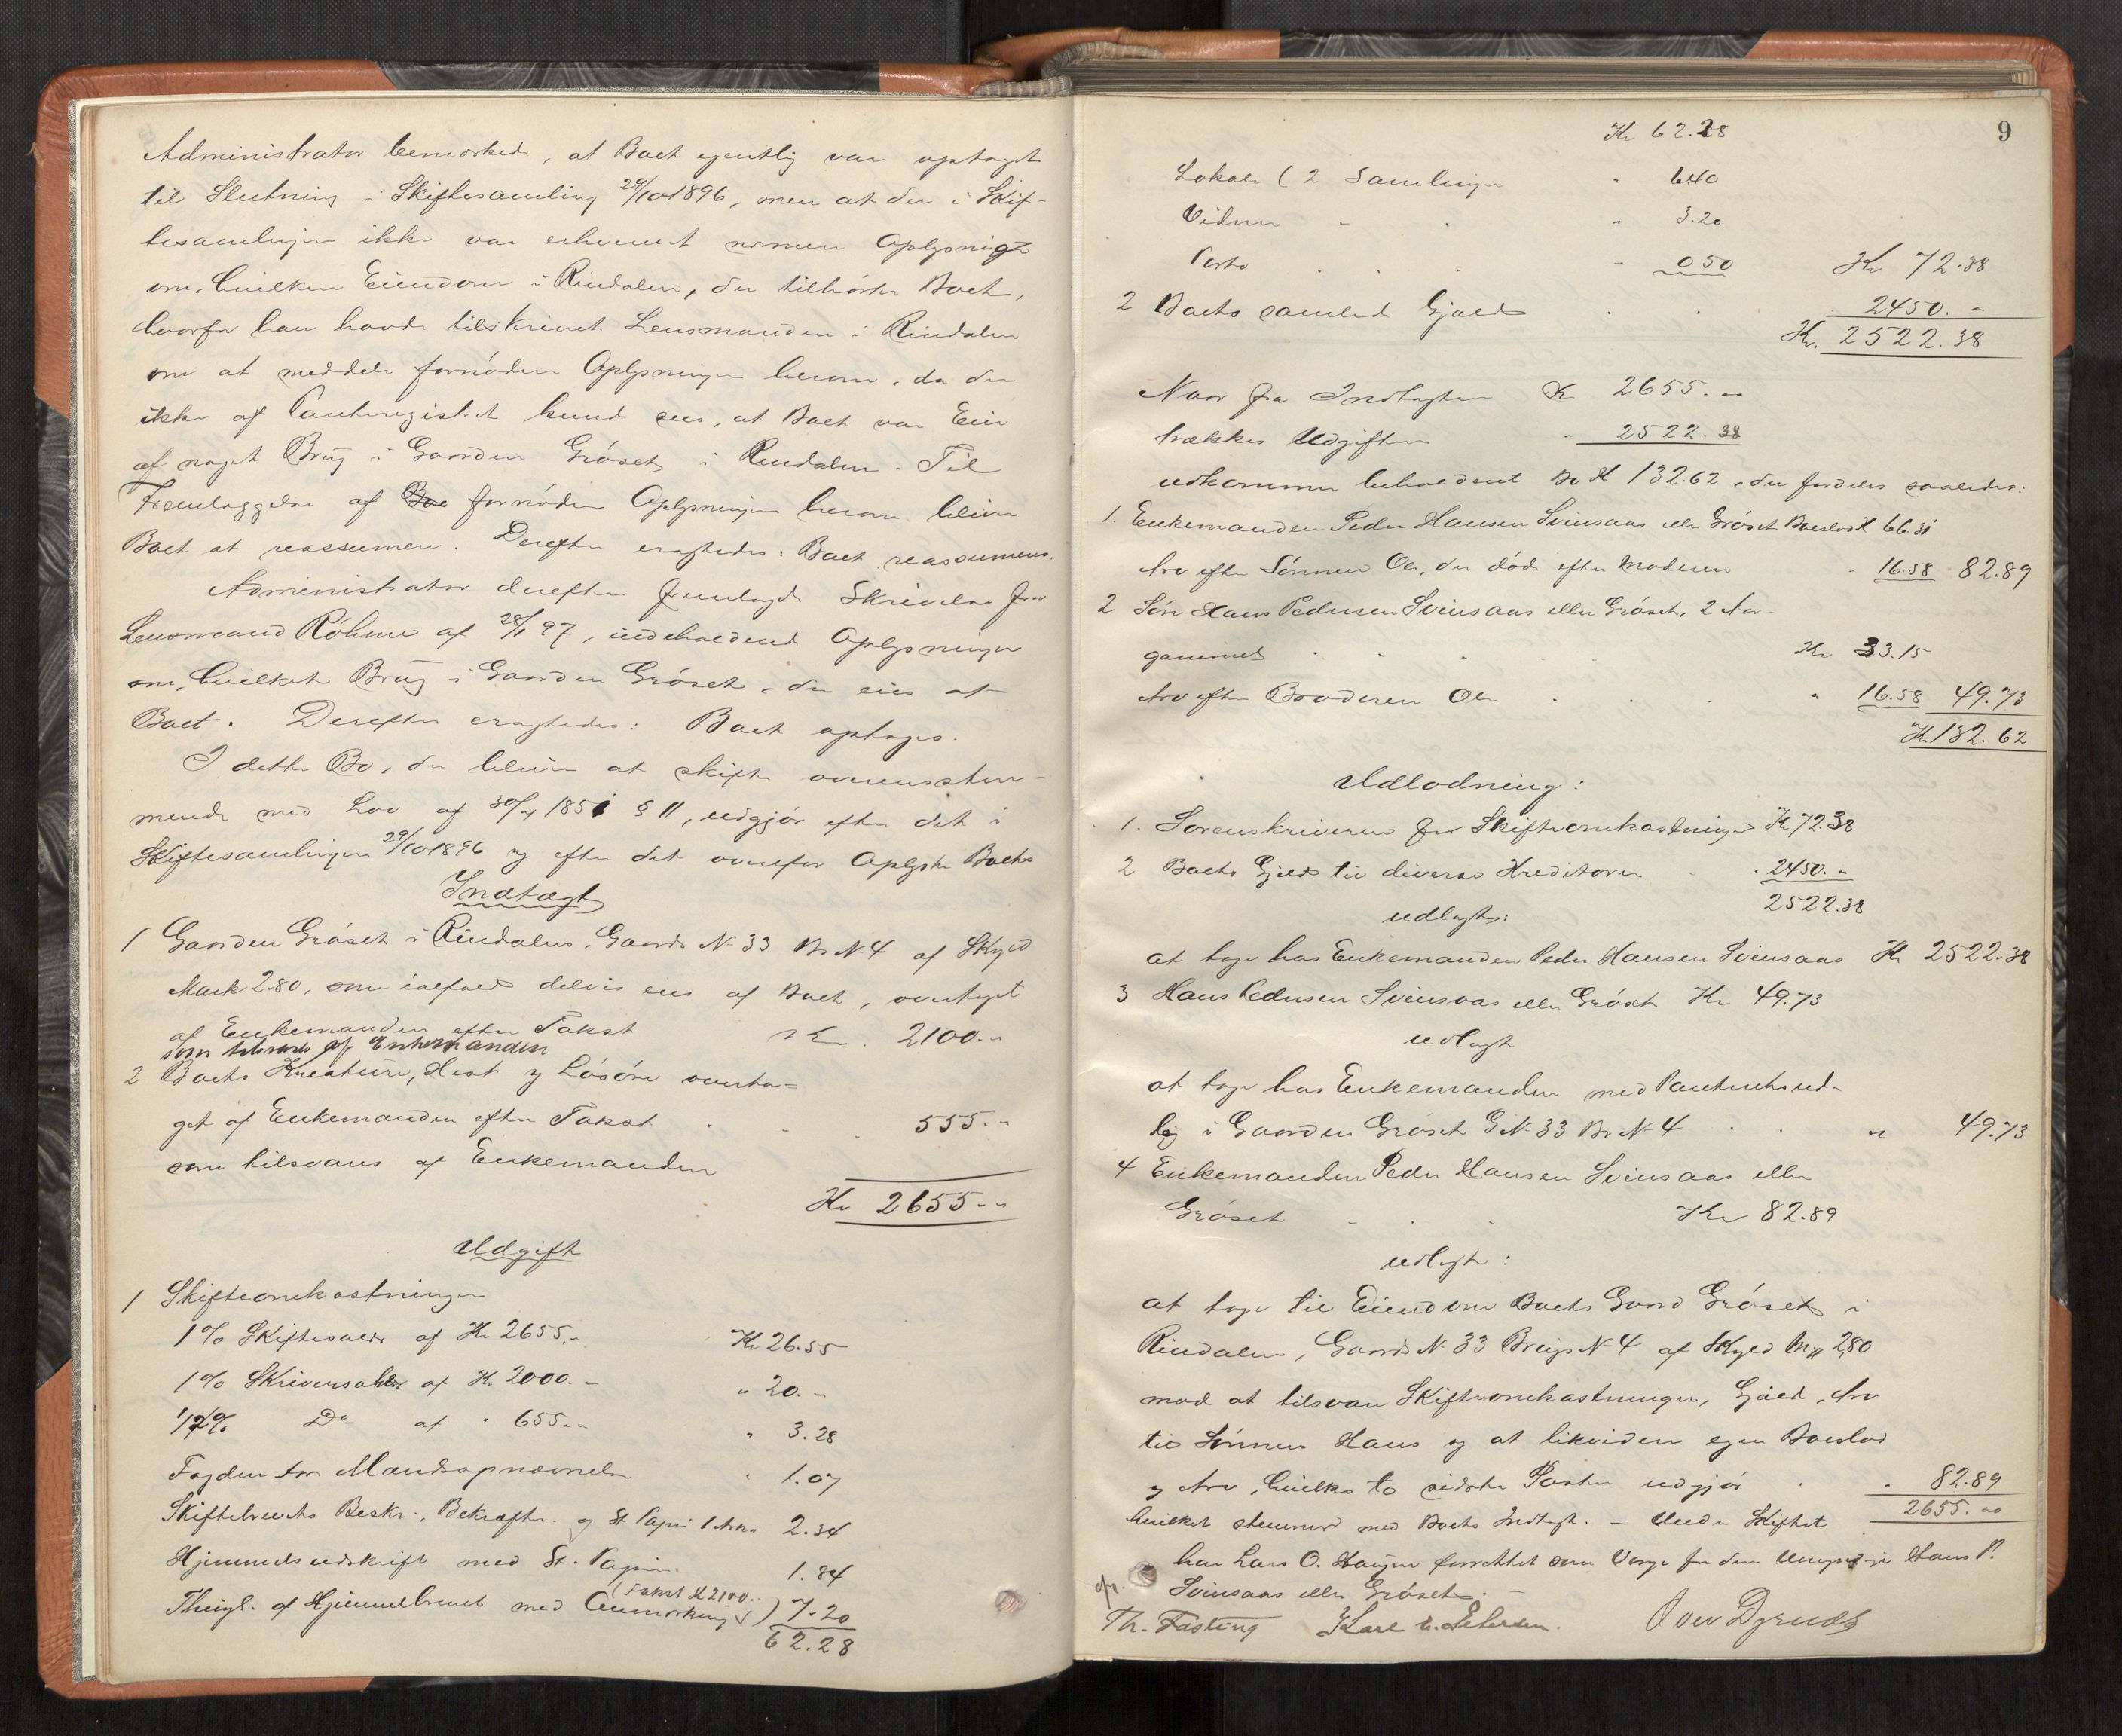 Administrator bemærkede, at Boet egentlig var optaget
til Slutning i Skiftesamling 29/10 1896, men at der i Skif-
tesamlingen ikke var erhvervet nærmere Oplysninger
om, hvilken Eiendom i Rindalen, der tilhørte Boet,
hvorfor han havde tilskrevet Lensmanden i Rindalen
om at meddele fornøden Oplysninger herom, da der
ikke af Panteregistret kunde sees, at Boet var Eier
af noget Brug i Gaarden Grøset i Rindalen. Til
Fremlæggelse af Boe fornøden Oplysninger herom bliver
Boet at reassumere. Derefter eragtedes: Boet reassumeres.
Administrator derefter fremlagde Skrivelse fra
Lensmand Röhme af 28/1 97, indeholdende Oplysninger
om, hvilket Brug i Gaarden Grøset, der eies af
Boet. Derefter eragtedes: Boet optages.
I dette Bo, der bliver at skifte overensstem-
mende med Lov af 30/7 1851 § 11, udgjør efter det i
Skiftesamlingen 29/10 1896 og efter det ovenfor Oplyste Boets
Indtægt
1 Gaarden Grøset i Rindalen, Gaards N. 33 Br. N. 4 af Skyld
Mark 2.80, som ialfald delvis eies af Boet, overtaget
af Enkemanden efter Takst Kr. 2100.-
som tilsvares af Enkemanden
2 Boets Kreature, Hest og Løsøre overta=
get af Enkemanden efter Takst 555.-
som tilsvares af Enkemanden
Kr 2655.-
Udgift
1 Skifteomkostninger
1% Skiftesalær af Kr 2655.- Kr 26.55
1% Skriversalær af Kr 2000.- " 20.-
1/2% Do af " 655.- " 3.28
Fogden for Mandsopnævnelse " 1.07
Skiftebrevets Beskr., Bekræftn. og St. Papir 1 Ark. 2.34
Hjemmelsudskrift med St. Papir. 1.84
(Takst Kr 2100.-
Thingl. af Hjemmelbrevet med Anmærkning) 7.20
62.28
9
Kr 62.28
Lokale (2 Samlinger " 6.40
Vidner " 3.20
Porto " 0.50 Kr 72.38
2 Boets samlede Gjæld 2450.-
Kr. 2522.38
Naar fra Indtægten Kr 2655.-
trækkes Udgiften - 2522.38
udkommer beholdent Bo Kr 132.62, der fordeles saaledes:
1. Enkemanden Peder Hansen Svinsaas eller Grøset Boeslod Kr 66.31
Arv efter Sønnen Ole, der døde efter Moderen " 16.58 82.89
2 Søn Hans Pedersen Svinsaas eller Grøset, 2 Aar
gammel Kr 33.15
Arv efter Broderen Ole " 16.58 49.73
Kr 132.62
Udlodning:
1. Sorenskriveren for Skifteomkostninger Kr 72.38
2 Boets Gjæld til diverse Kreditorer . 2450.-
2522.38
udlagt:
at tage hos Enkemanden Peder Hansen Svinsaas Kr 2522.38
3 Hans Pedersen Svinsaas eller Grøset Kr 49.73
udlagt
at tage hos Enkemanden med Panteretsud-
læg i Gaarden Grøset G.N. 33 Br.N. 4 " 49.73
4 Enkemanden Peder Hansen Svinsaas eller
Grøset Kr 82.89
udlagt:
at tage til Eiendom Boets Gaard Grøset i
Rindalen, Gaards N. 33 Brugs N. 4 af Skyld M. 2,80
mod at tilsvare Skifteomkostninger, Gjæld, Arv
til Sønnen Hans og at likvidere egen Boeslod
og Arv, hvilke to sidste Poster udgjør " 82.89
hvilket stemmer med Boets Indtægt. – Under Skiftet 2655.00
har Lars O. forrettet som Værge for den Umyndige Hans P.
Svinsaas eller Grøset. –
Th. Fasting Karl Petersen. Iver Dyrnes